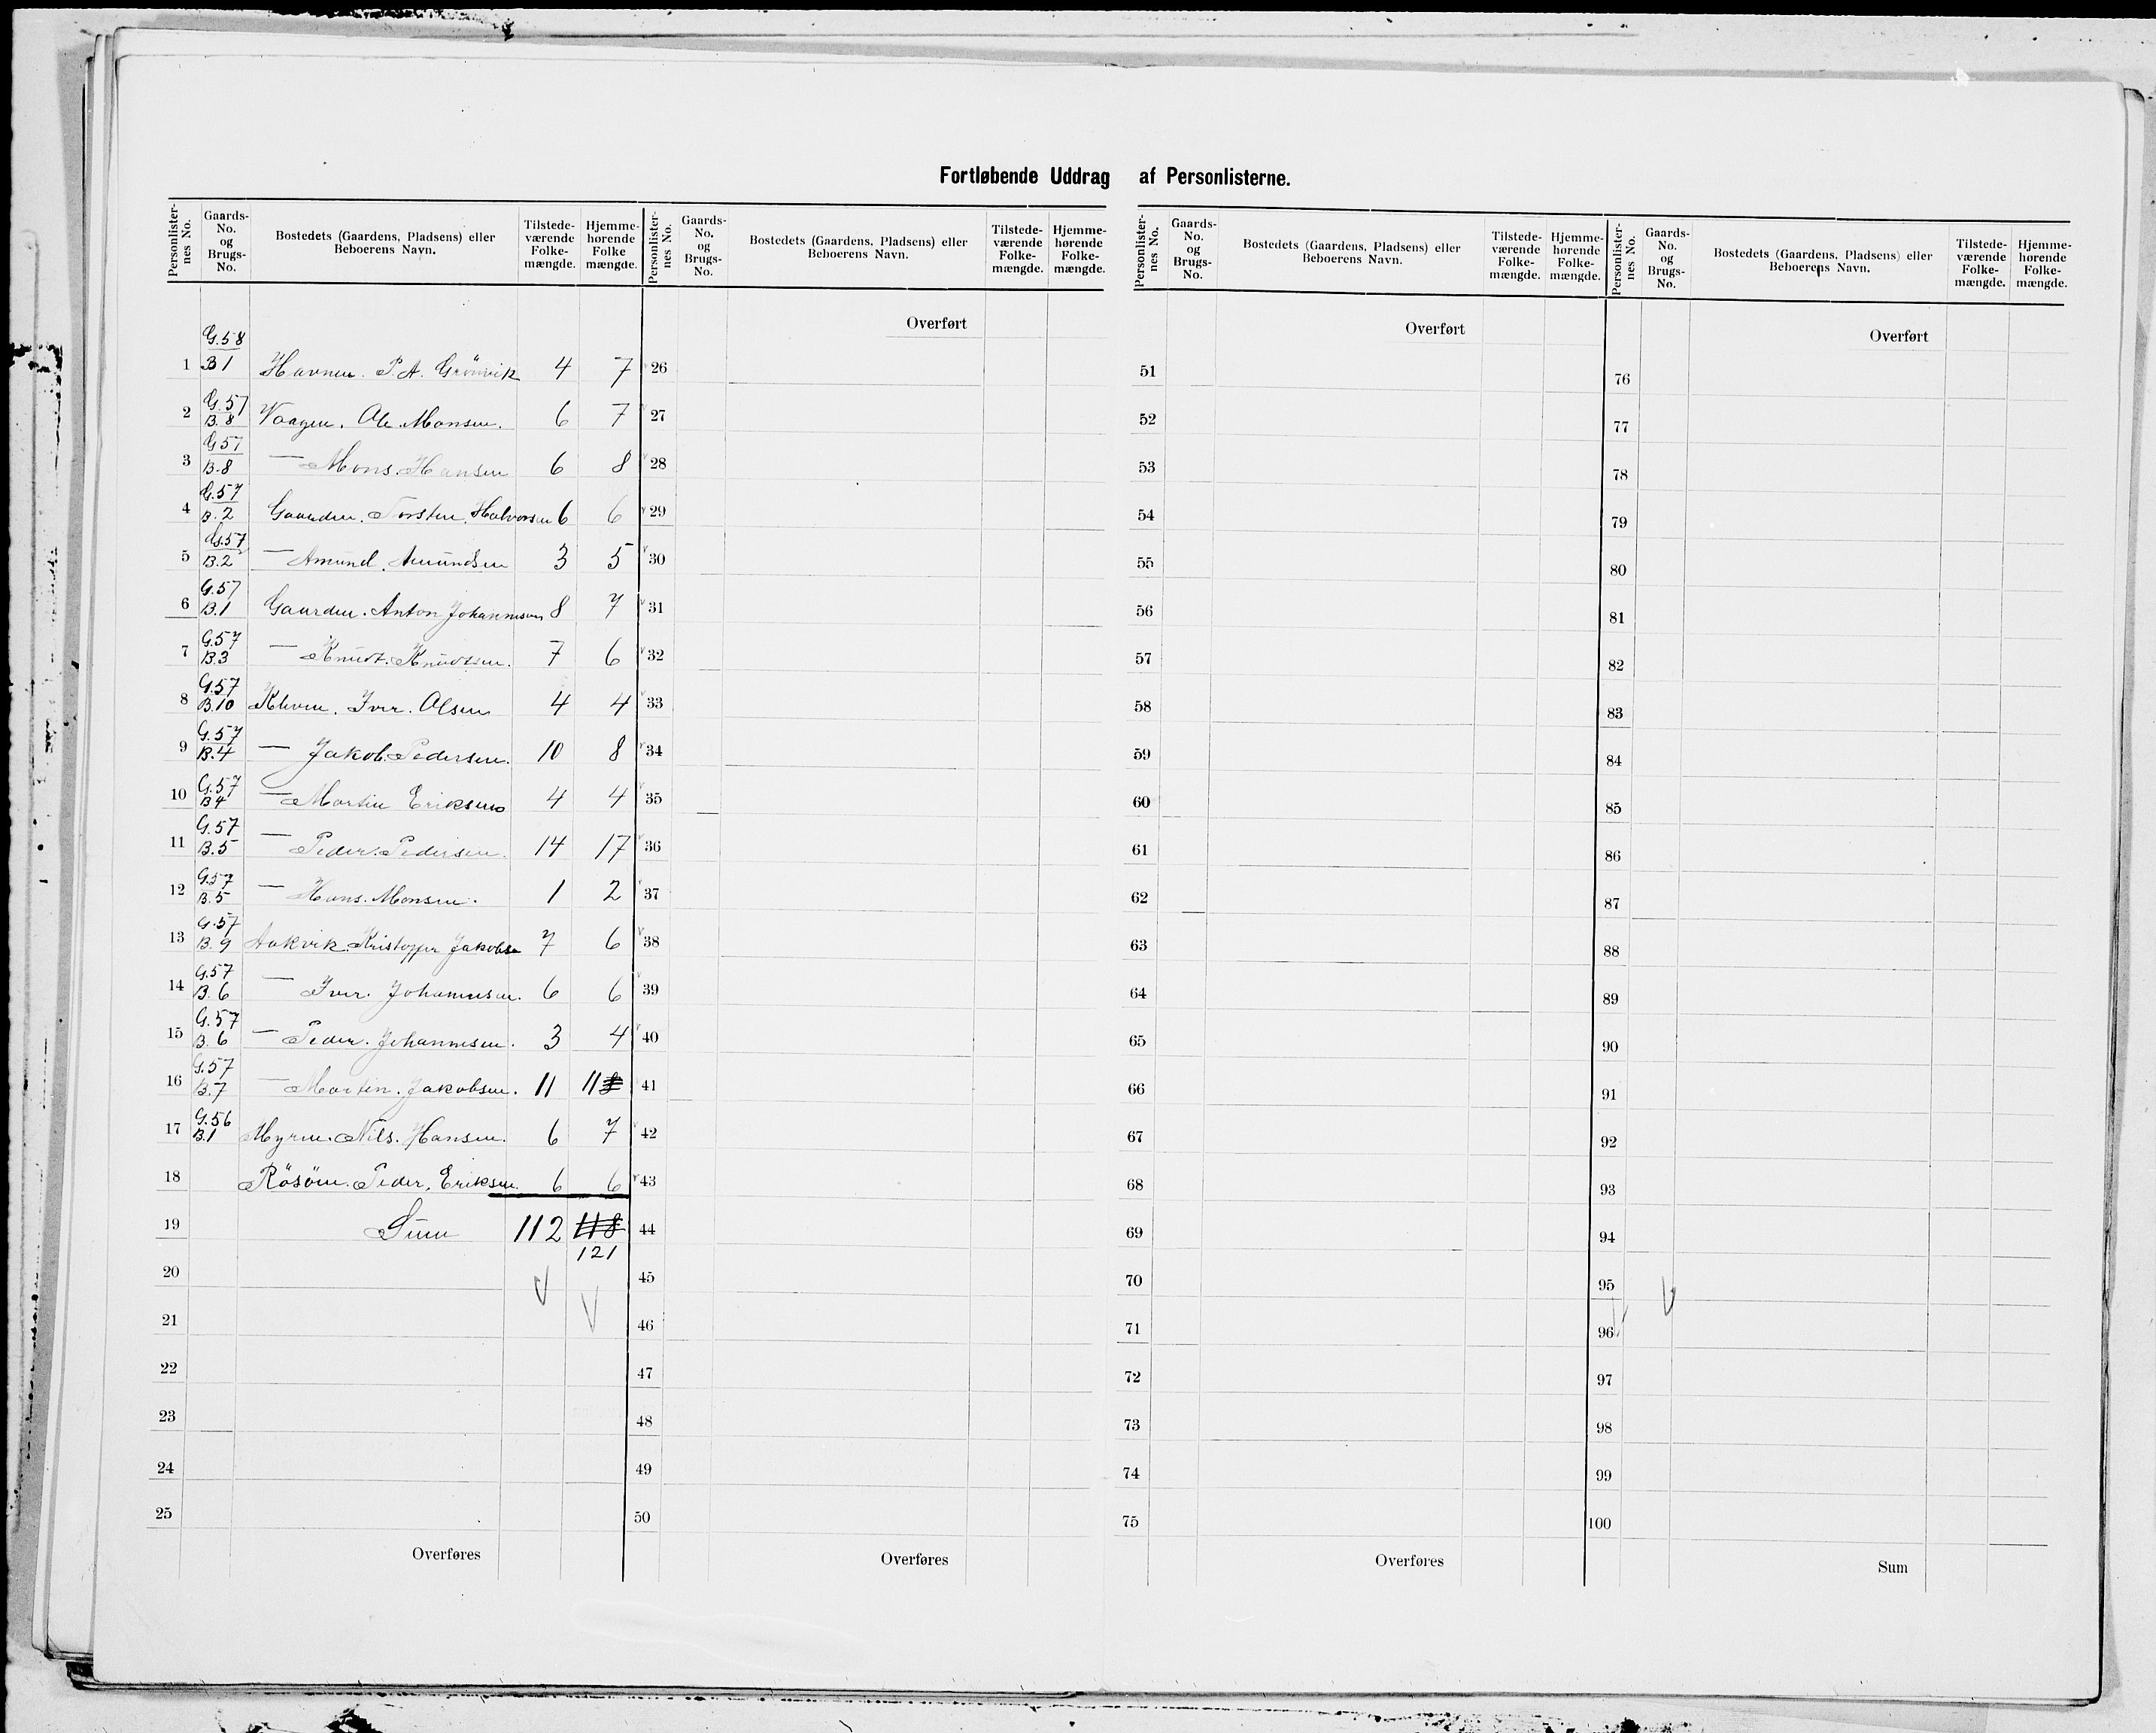 Fortløbende Uddrag af Personlisterne.
Personlisternes No. Gaards-No. og Brugs-No. Bostedets (Gaardens, Pladsens) eller Beboerens Navn. Tilstedeværende Folkemængde. Hjemmehørende Folkemængde.
1 G.58 B1 Havnen. P.A. Grönvik 4 7
2 G.57 B.8 Vaagen. Ole Monsen. 6 7
3 G57 B.8 — Mons. Hansen 6 8
4 G.57 B.2 Gaarden. Torsten. Halvorsen 6 6
5 G.57 B.2 — Amund. Amundsen 3 5
6 G.57 B.1 Gaarden. Anton Johannesen 8 7
7 G.57 B.3 — Knudt. Knudtsen. 7 6
8 G.57 B.10 Kleven. Iver. Olsen 4 4
9 G.57 B.4 — Jakob. Pedersen. 10 8
10 G.57 B4 — Martin Eriksen 4 4
11 G.57 B.5 — Peder. Pedersen. 14 17
12 G.57 B.5 — Hans. Monsen. 1 2
13 G.57 B.9 Aakvik. Kristoffer Jakobse 7 6
14 G.57 B.6 — Iver. Johannesen. 6 6
15 G.57 B.6 — Peder. Johannesen. 3 4
16 G.57 B.7 — Martin. Jakobsen. 11 11
17 G.56 B.1 Myren. Nils. Hansen. 6 7
18 Rösöen. Peder. Eriksen. 6 6
19 Sum 112 118
121
20
21
22
23
24
25
Overføres
Personlisternes No. Gaards-No. og Brugs-No. Bostedets (Gaardens, Pladsens) eller Beboerens Navn. Tilstedeværende Folkemængde. Hjemmehørende Folkemængde.
Overført
26
27
28
29
30
31
32
33
34
35
36
37
38
39
40
41
42
43
44
45
46
47
48
49
50
Overføres
Personlisternes No. Gaards-No. og Brugs-No. Bostedets (Gaardens, Pladsens) eller Beboerens Navn. Tilstedeværende Folkemængde. Hjemmehørende Folkemængde.
Overført
51
52
53
54
55
56
57
58
59
60
61
62
63
64
65
66
67
68
69
70
71
72
73
74
75
Overføres
Personlisternes No. Gaards-No. og Brugs-No. Bostedets (Gaardens, Pladsens) eller Beboerens Navn. Tilstedeværende Folkemængde. Hjemmehørende Folkemængde.
Overført
76
77
78
79
80
81
82
83
84
85
86
87
88
89
90
91
92
93
94
95
96
97
98
99
100
Sum